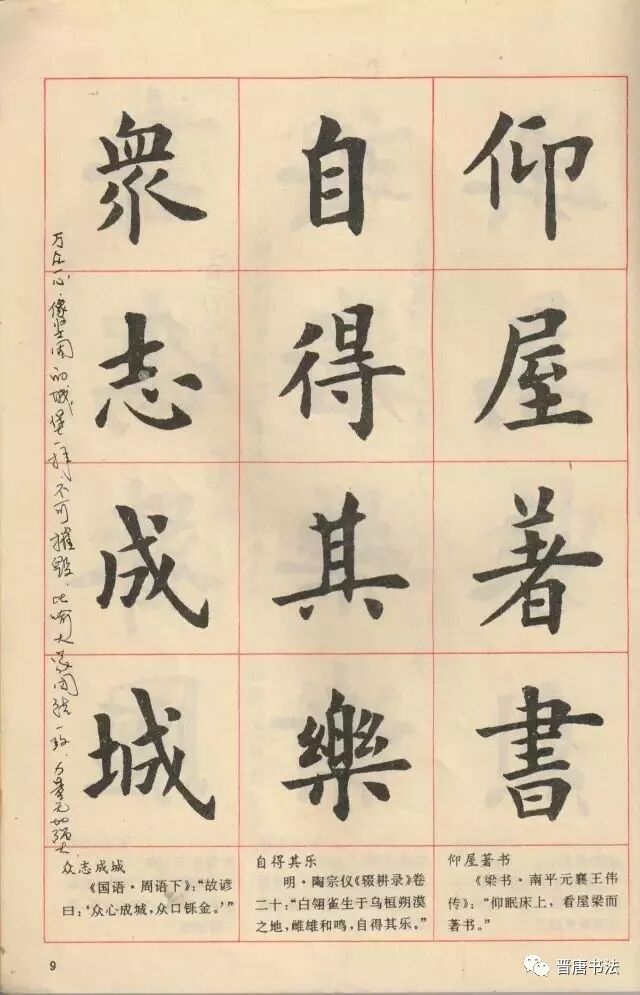 仰屋著書
自得其樂
眾志成城
万众一心，像坚固的城堡一样不可摧毁，比喻大家团结一致，力量无比强大
仰屋著书
《梁书·南平元襄王伟
传》：“仰眠床上，看屋梁而
著书。”
自得其乐
明·陶宗仪《辍耕录》卷
二十：“白翎雀生于乌桓朔漠
之地，雌雄和鸣，自得其乐。”
众志成城
《国语·周语下》：“故谚
曰：‘众心成城，众口铄金。’”
9
晋唐书法